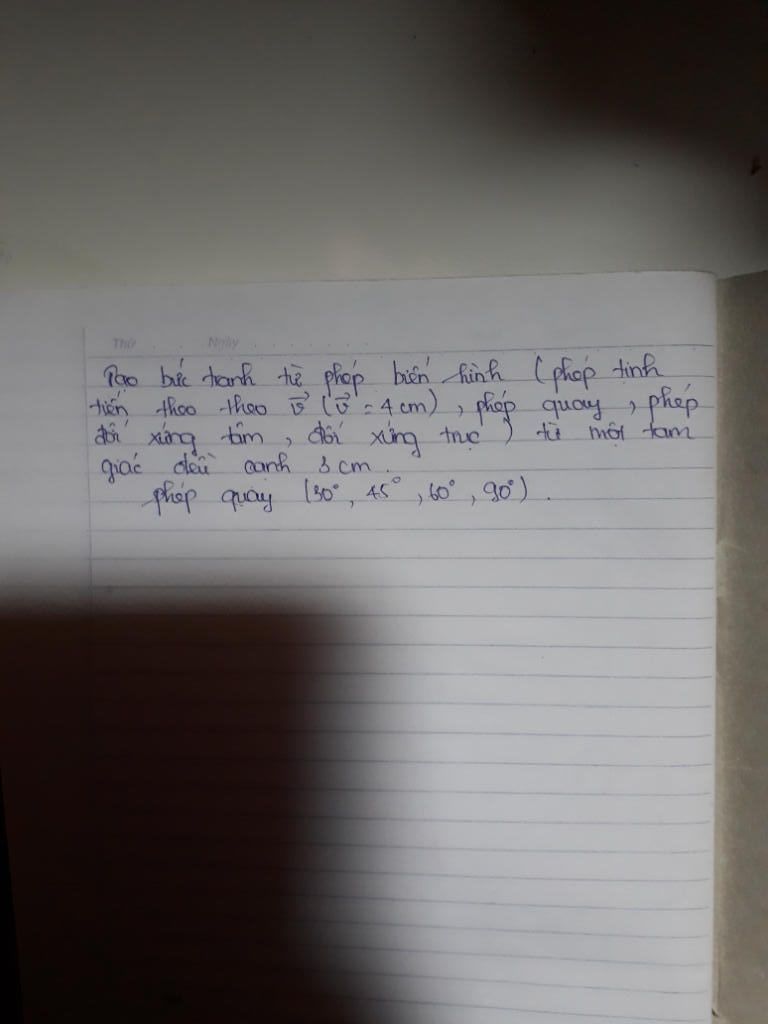 Thứ Ngày
Tạo bức tranh từ phép biến hình (phép tịnh
tiến theo theo v⃗ (v⃗ = 4 cm), phép quay, phép
đối xứng tâm, đối xứng trục) từ một tam
giác đều cạnh 3 cm.
phép quay (30°, 45°, 60°, 90°).